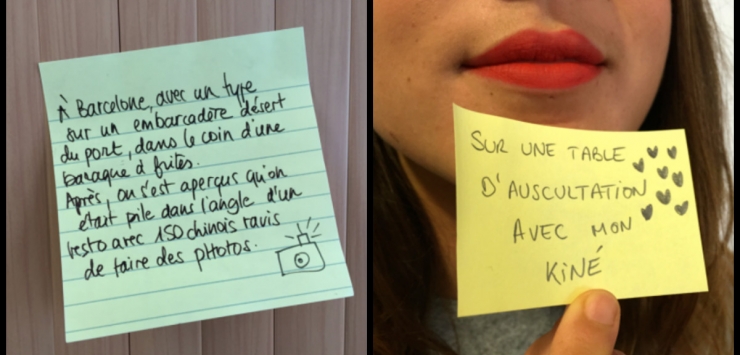 À Barcelone, avec un type
sur un embarcadère désert
du port, dans le coin d'une
baraque à frites.
Après, on s'est aperçus qu'on
était pile dans l'angle d'un
resto avec 150 chinois ravis
de faire des photos.
SUR UNE TABLE
D'AUSCULTATION
AVEC MON
KINÉ